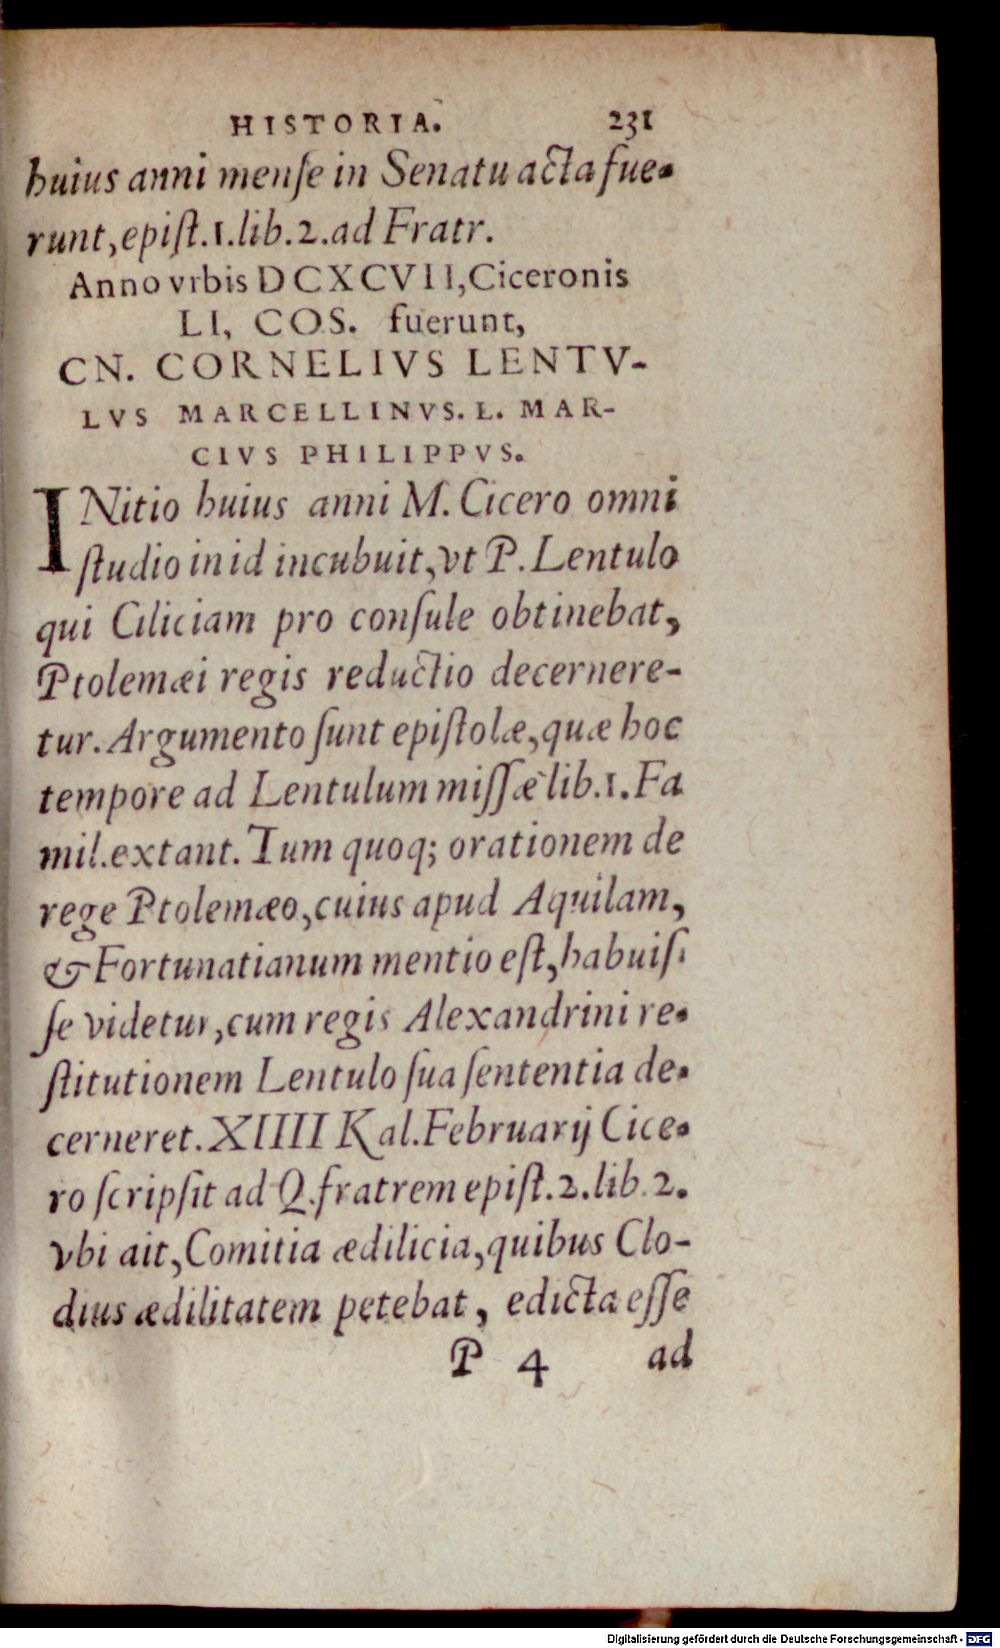 HISTORIA. 231
huius anni menſe in Senatu acta fue-
runt, epiſt.1.lib.2.ad Fratr.
Anno vrbis DCXCVII, Ciceronis
LI, COS. fuerunt,
CN. CORNELIVS LENTV-
LVS MARCELLINVS. L. MAR-
CIVS PHILIPPVS.
INitio huius anni M. Cicero omni
ſtudio in id incubuit, vt P. Lentulo
qui Ciliciam pro conſule obtinebat,
Ptolemæi regis reductio decernere-
tur. Argumento ſunt epiſtolæ, quæ hoc
tempore ad Lentulum miſſæ lib.1.Fa
mil.extant. Tum quoq; orationem de
rege Ptolemæo, cuius apud Aquilam,
& Fortunatianum mentio eſt, habuiſ-
ſe videtur, cum regis Alexandrini re-
ſtitutionem Lentulo ſua ſententia de-
cerneret. XIIII Kal. Februarij Cice-
ro ſcripſit ad Q. fratrem epiſt.2.lib.2.
vbi ait, Comitia ædilicia, quibus Clo-
dius ædilitatem petebat, edicta eſſe
P 4 ad
Digitalisierung gefördert durch die Deutsche Forschungsgemeinschaft - DFG